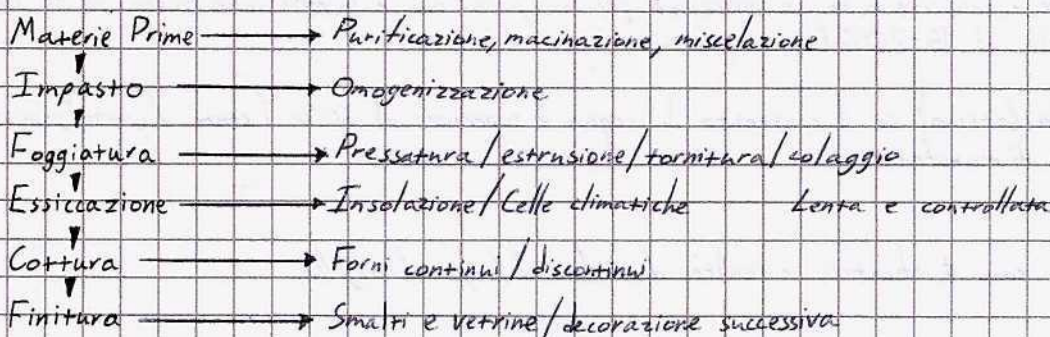 Materie Prime → Purificazione, macinazione, miscelazione
Impasto → Omogenizzazione
Foggiatura → Pressatura/estrusione/tornitura/colaggio
Essiccazione → Insolazione/Celle climatiche Lenta e controllata
Cottura → Forni continui/discontinui
Finitura → Smalti e vetrine/decorazione successiva